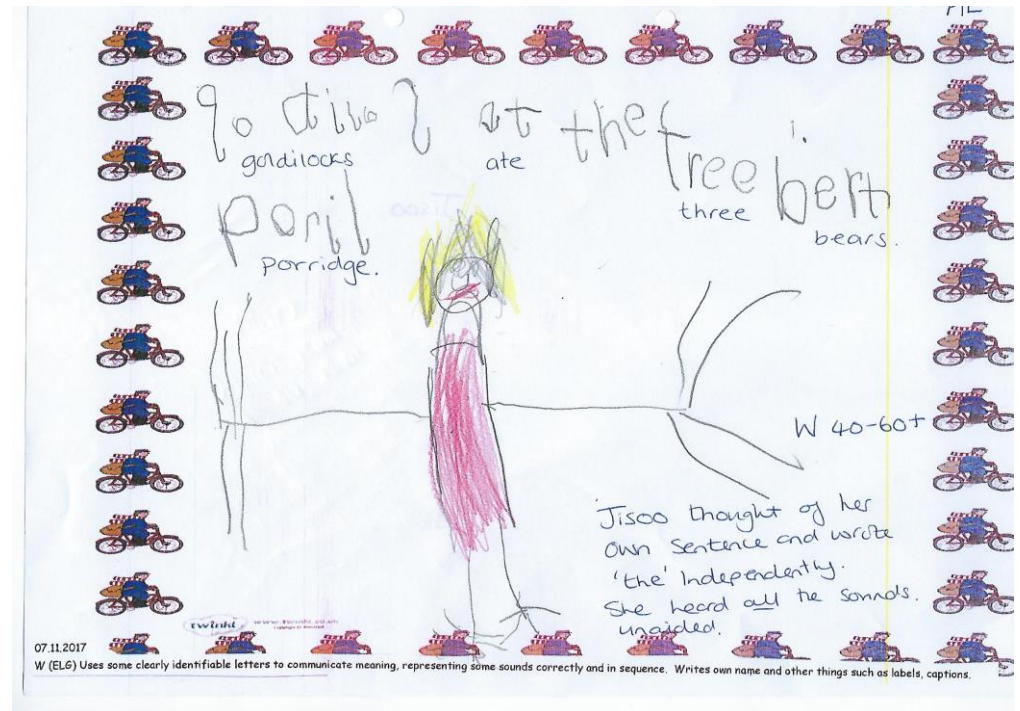 PIL
go dilol at the free bert
goldilocks ate three bears.
poril
porridge.
Jisoo
W 40-60+
Jisoo thought of her
own sentence and wrote
'the' independently.
She heard all the sounds.
unaided.
twinkl www.twinkl.co.uk
07.11.2017
W (ELG) Uses some clearly identifiable letters to communicate meaning, representing some sounds correctly and in sequence. Writes own name and other things such as labels, captions.